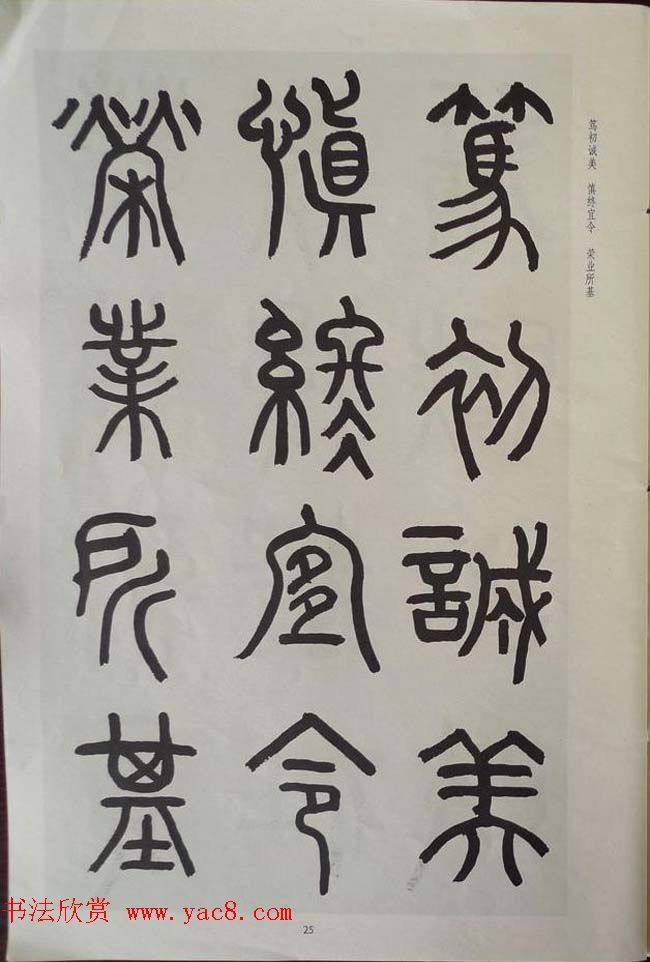 笃初诚美 慎终宜令 荣业所基
篤初誠美
慎終宜令
榮業所基
书法欣赏 www.yac8.com
25